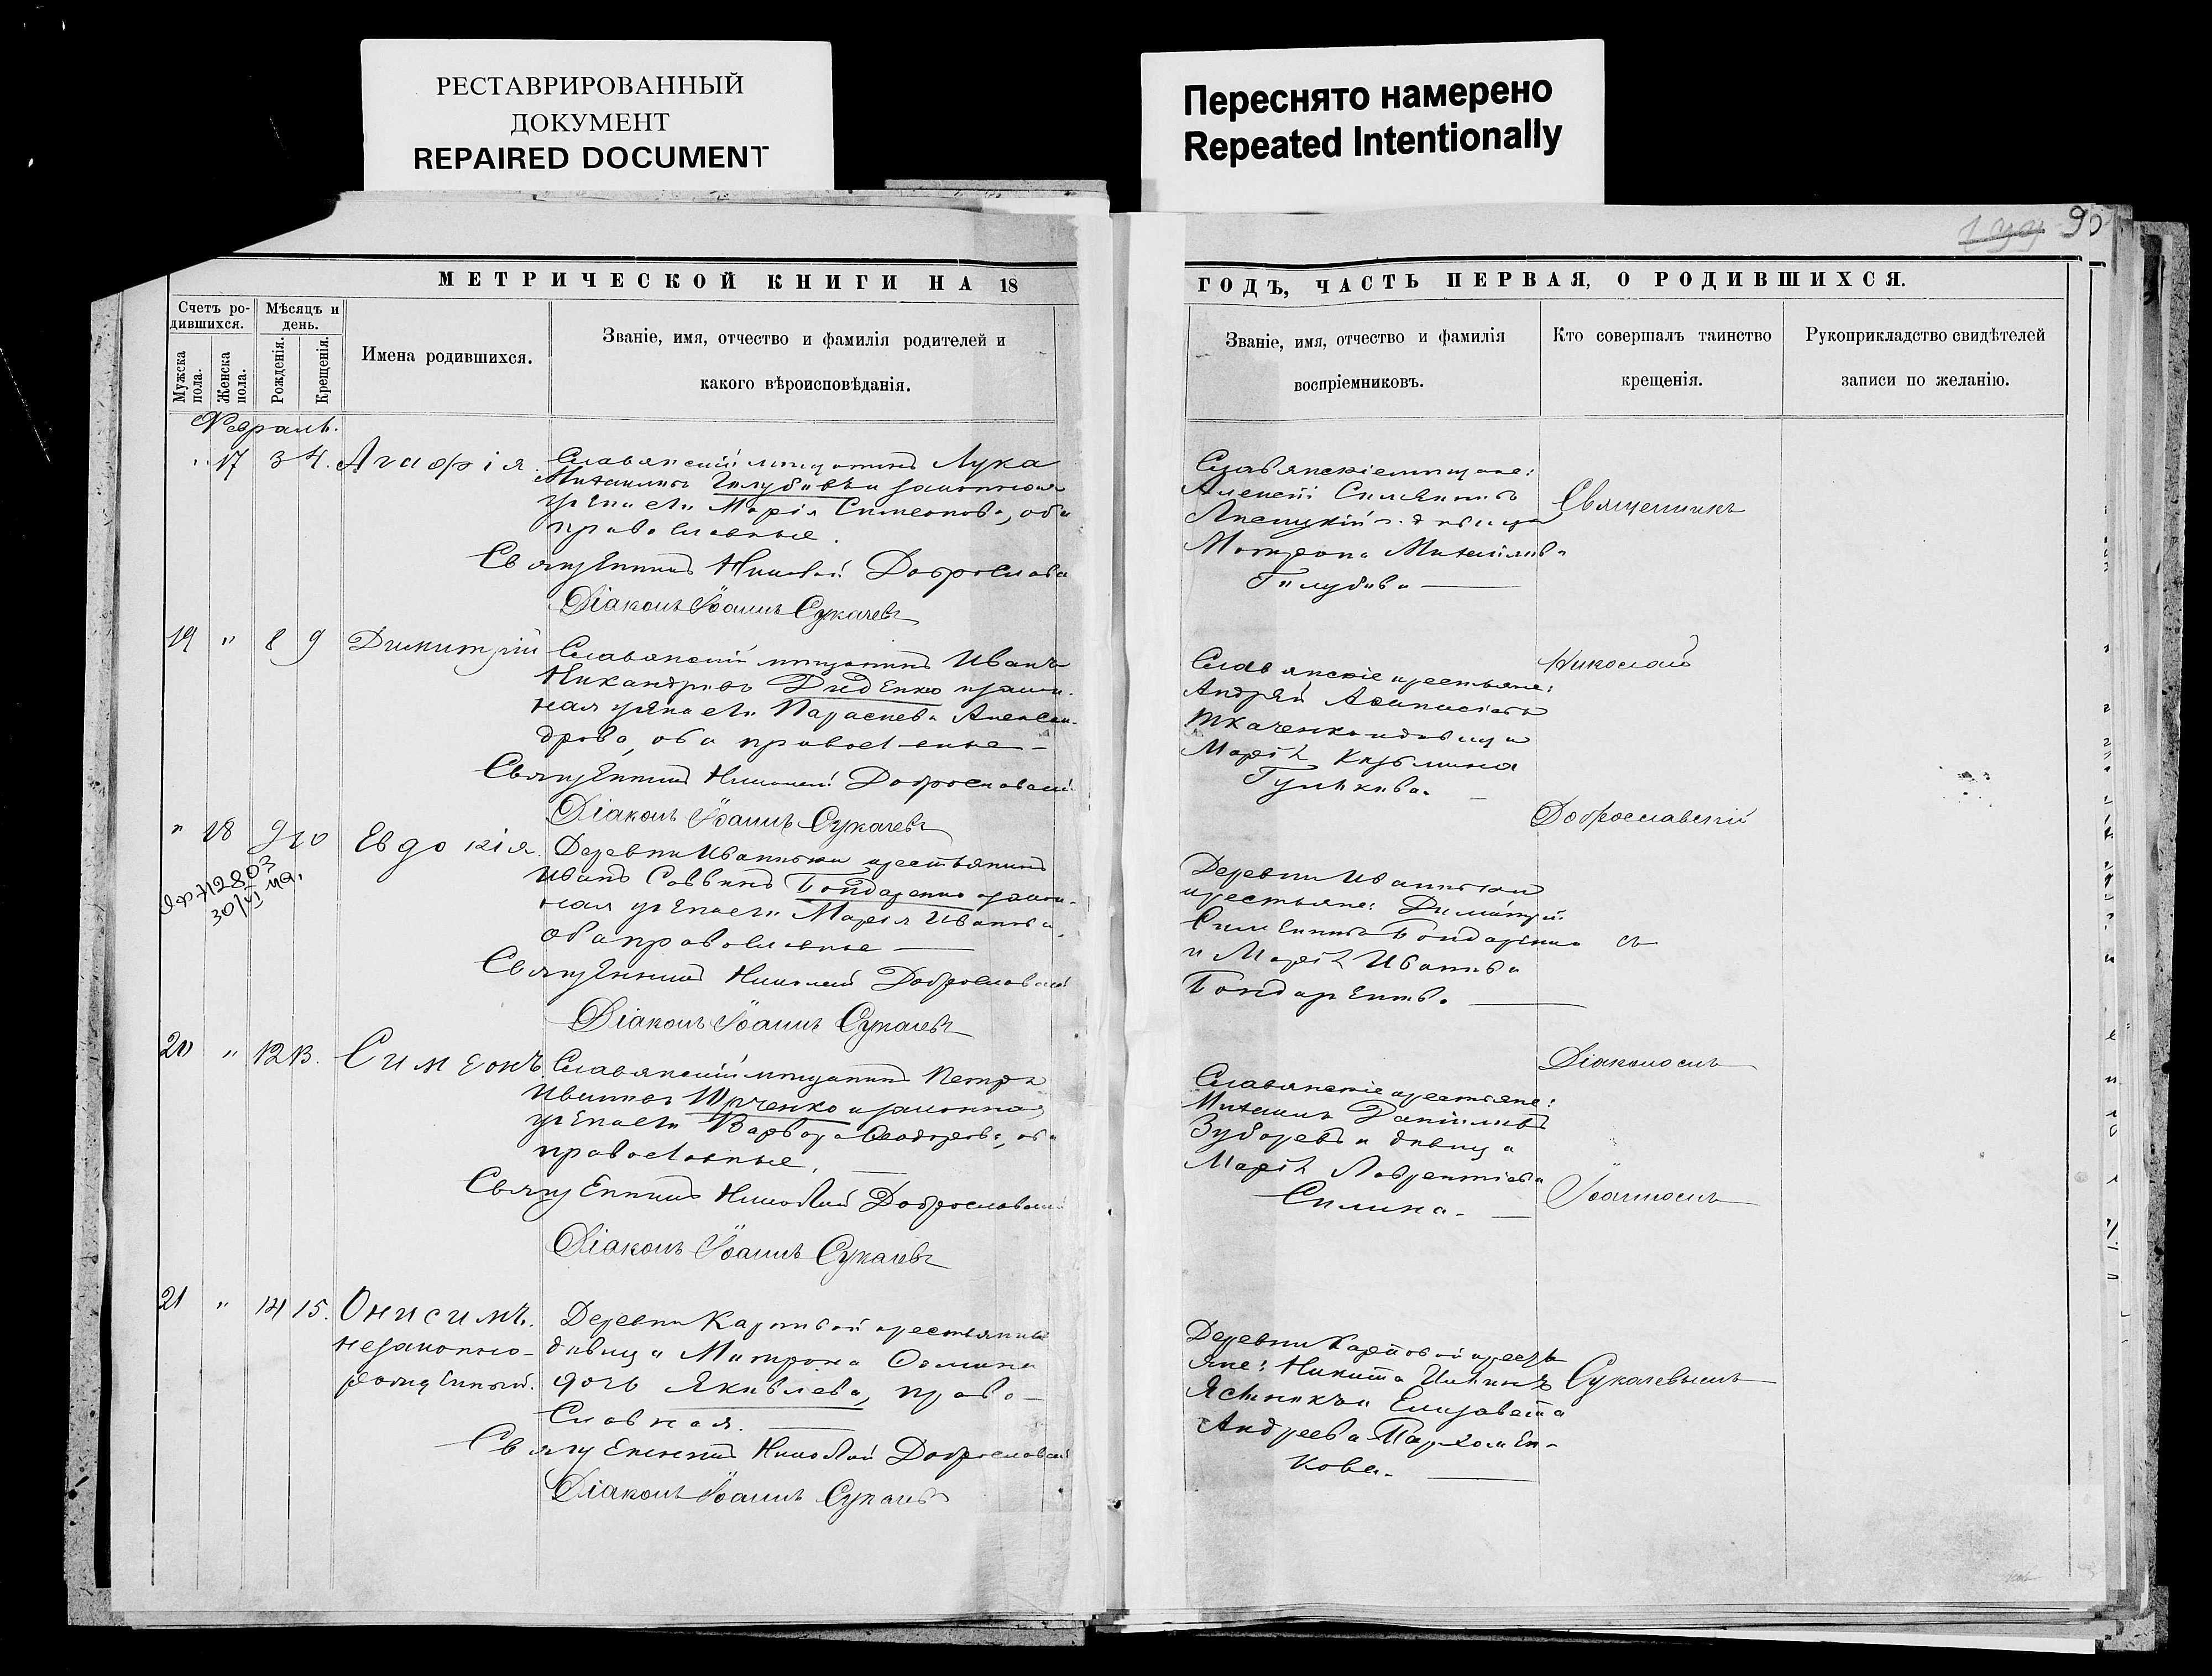 РЕСТАВРИРОВАННЫЙ
ДОКУМЕНТ
REPAIRED DOCUMENT
Переснято намерено
Repeated Intentionally
90
МЕТРИЧЕСКОЙ КНИГИ НА 18
Счетъ ро-
дившихся.
Мѣсяцъ и
день.
Мужска
пола.
Женска
пола.
Рожденія.
Крещенія.
Имена родившихся.
Званіе, имя, отчество и фамилія родителей и
какого вѣроисповѣданія.
Февраль.
" 17 3 4. Агафія. Славянскій мѣщанинъ Лука
Михаиловъ Голубовъ и законная
жена его Марія Симеонова, оба
православные.
Священникъ Николай Доброславскій
Діаконъ Іоаннъ Сукачевъ
19 " 8 9 Димитрій Славянскій мѣщанинъ Иванъ
Никандровъ Диденко и закон-
ная жена его Параскева Алексан-
дрова, оба православные
Священникъ Николай Доброславскій
Діаконъ Іоаннъ Сукачевъ
" 18 9 10 Евдокія. Деревни Ивановки крестьянинъ
Иванъ Саввинъ Бондаренко и закон-
ная жена его Марія Иванова,
оба православные
Священникъ Николай Доброславскій
Діаконъ Іоаннъ Сукачевъ
20 " 12 13. Симеонъ. Славянскій мѣщанинъ Петръ
Ивановъ Юрченко и законная
жена его Варвара Феодорова, оба
православные.
Священникъ Николай Доброславскій
Діаконъ Іоаннъ Сукачевъ
21 " 14 15. Онисимъ. Деревни Карповой крестьянка
незаконно- дѣвица Матрона Фомина
рожденный. дочь Яковлева, право-
славная.
Священникъ Николай Доброславскій
Діаконъ Іоаннъ Сукачевъ
ГОДЪ, ЧАСТЬ ПЕРВАЯ, О РОДИВШИХСЯ.
Званіе, имя, отчество и фамилія
воспріемниковъ.
Кто совершалъ таинство
крещенія.
Рукоприкладство свидѣтелей
записи по желанію.
Славянскіе мѣщане:
Алексѣй Симеоновъ
и дѣвица
Матрона Михаилова
Голубова
Священникъ
Славянскіе крестьяне:
Андрей Афанасіевъ
Ткаченко и дѣвица
Марія Кузьмина
Николай
Доброславскій
Деревни Ивановки
крестьяне: Димитрій
Симеоновъ Бондаренко
и Марія Иванова
Бондаренкова.
съ
Діакономъ
Славянскіе крестьяне:
Михаилъ Даніиловъ
Зубаревъ и дѣвица
Марія Лаврентіева
Іоанномъ
Деревни Карповой кресть-
яне: Никита
и Елизавета
Андреева Пархомен-
кова.
Сукачевымъ